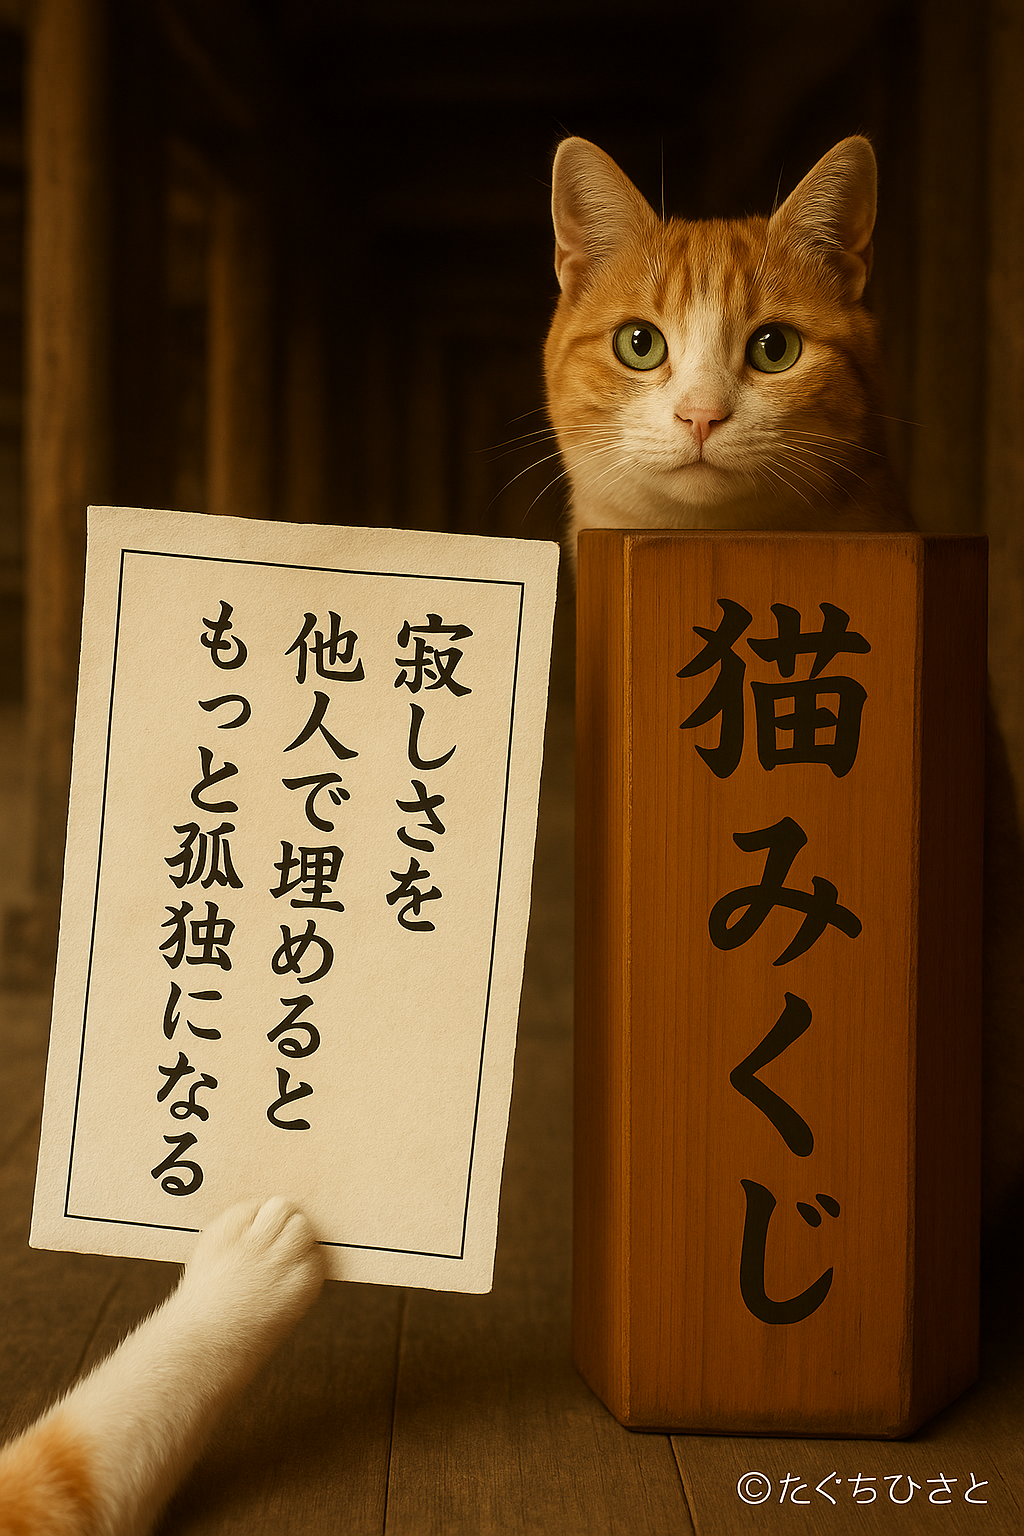 寂しさを
他人で埋めると
もっと孤独になる
猫みくじ
©たぐちひさと